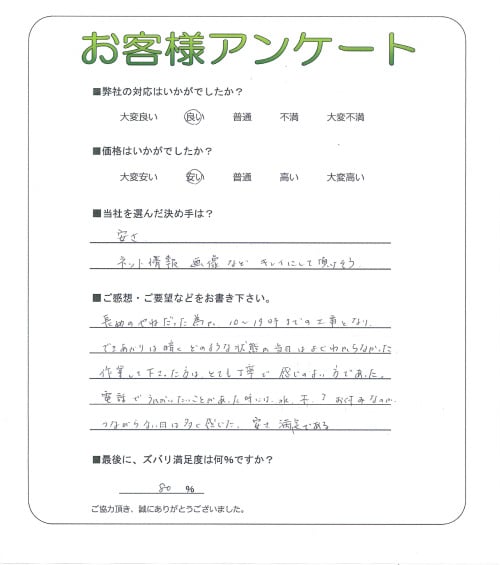 お客様アンケート
■弊社の対応はいかがでしたか？
大変良い 良い 普通 不満 大変不満
■価格はいかがでしたか？
大変安い 安い 普通 高い 大変高い
■当社を選んだ決め手は？
安さ
ネット情報 画像など キレイにして頂けそう
■ご感想・ご要望などをお書き下さい。
長めのやねだった為か、10〜19時までの工事となり、
できあがりは暗く どのような状態か当日はよくわからなかった
作業して下さった方は、とても丁寧で 感じのよい方であった。
電話でうかがいたいことがあった時には、水、不、？ お休みなのか、
つながらない日は多く感じた。安さ 満足である
■最後に、ズバリ満足度は何％ですか？
80 ％
ご協力頂き、誠にありがとうございました。